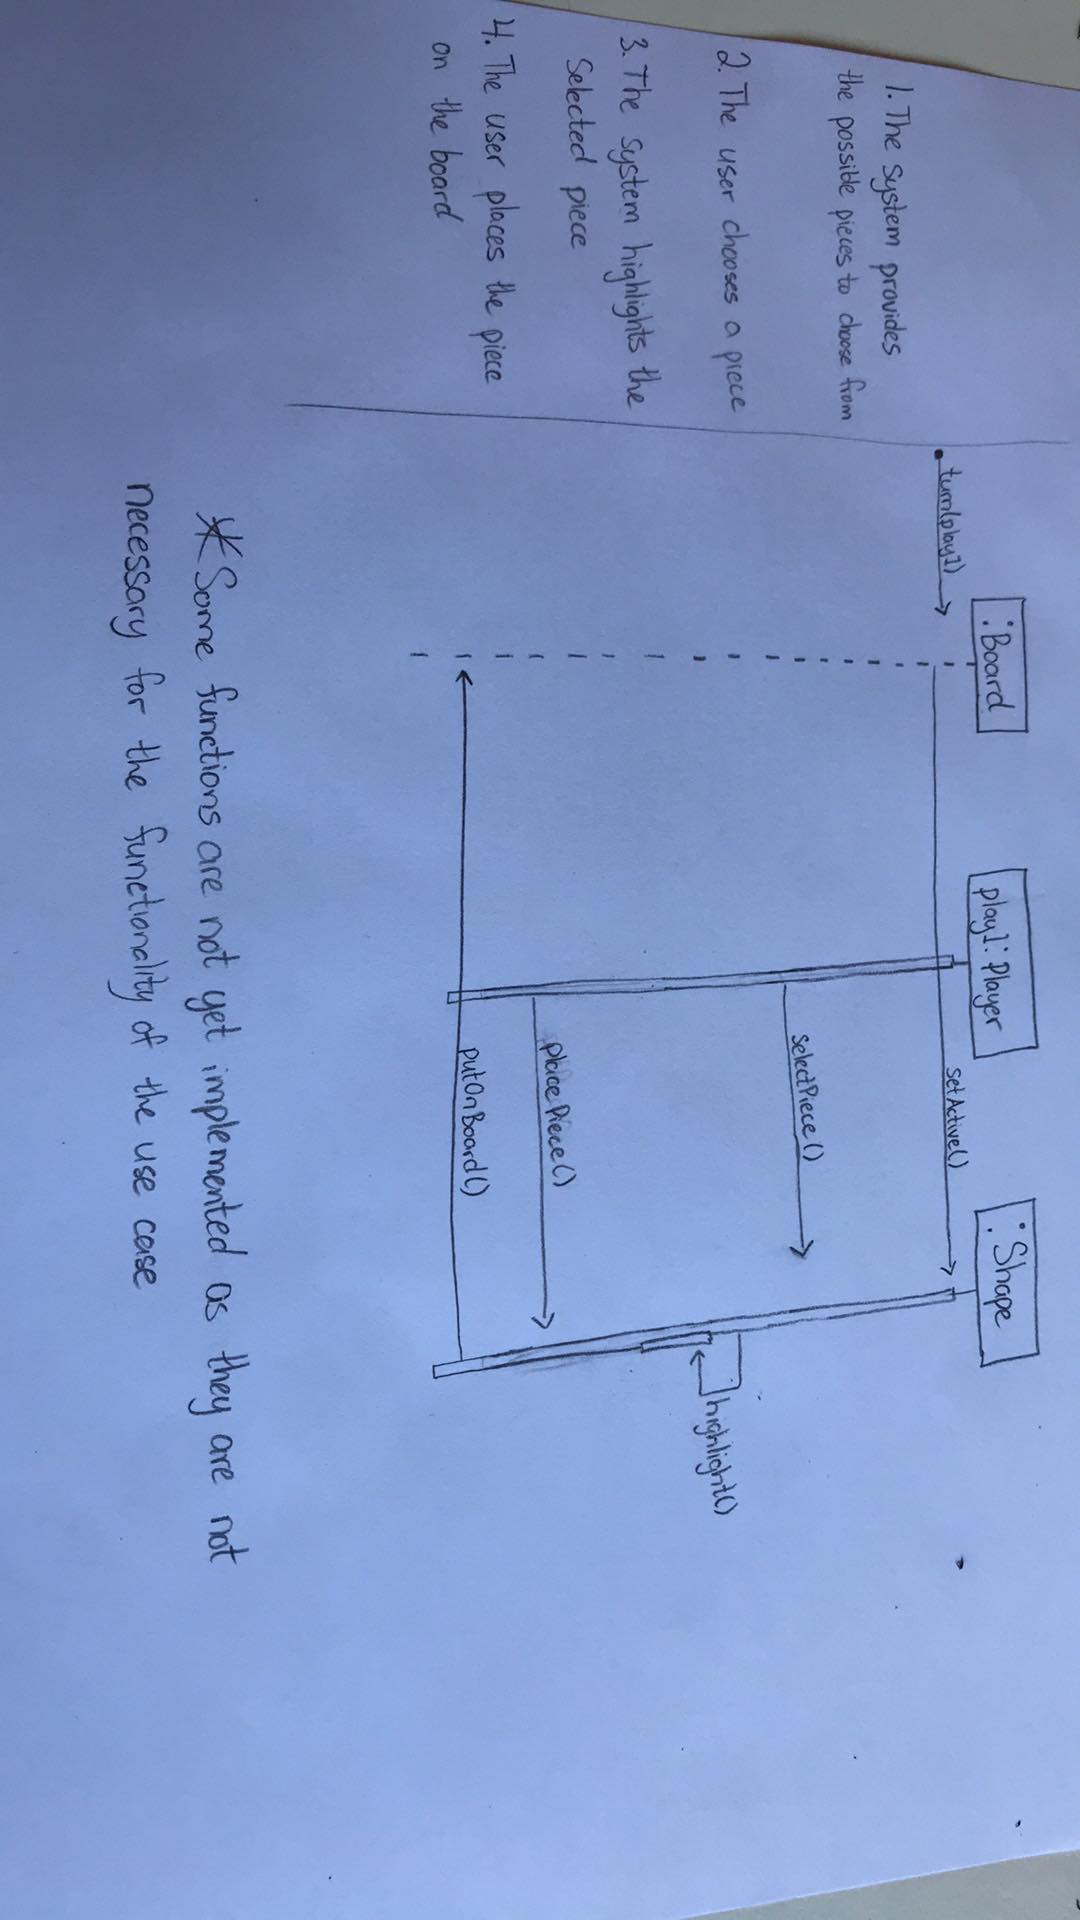 1. The system provides
the possible pieces to choose from
2. The user chooses a piece
3. The system highlights the
Selected piece
4. The user places the piece
on the board
:Board
play1: Player
:Shape
turn(play1)
setActive()
selectPiece()
highlight()
placePiece()
putOnBoard()
* Some functions are not yet implemented as they are not
necessary for the functionality of the use case